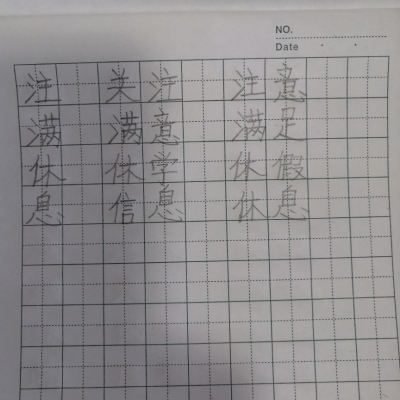 NO.
Date
注 关注 注意
满 满意 满足
休 休学 休假
息 信息 休息